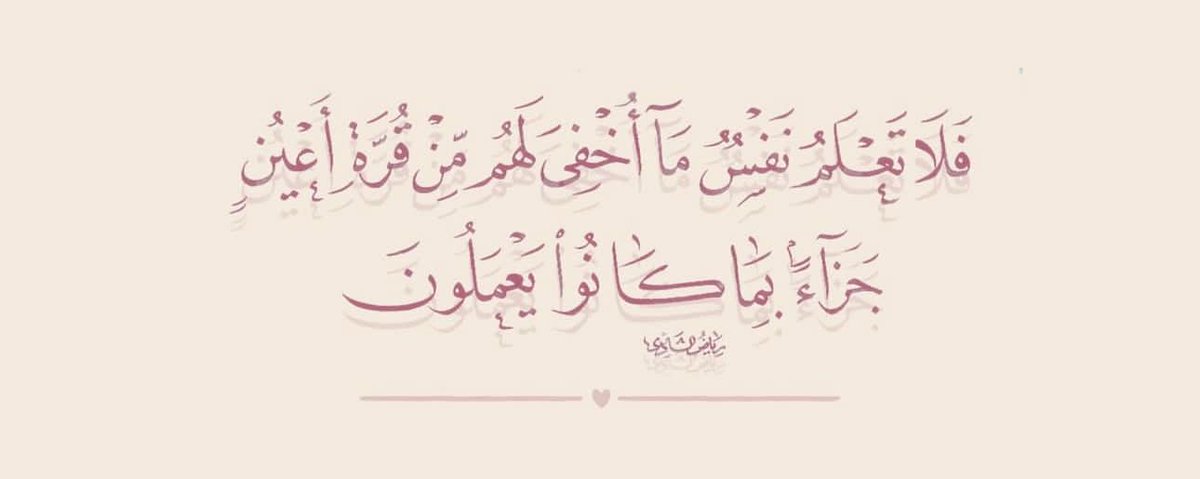 فَلَا تَعْلَمُ نَفْسٌ مَّآ أُخْفِىَ لَهُم مِّن قُرَّةِ أَعْيُنٍ
جَزَآءًۢ بِمَا كَانُوا۟ يَعْمَلُونَ